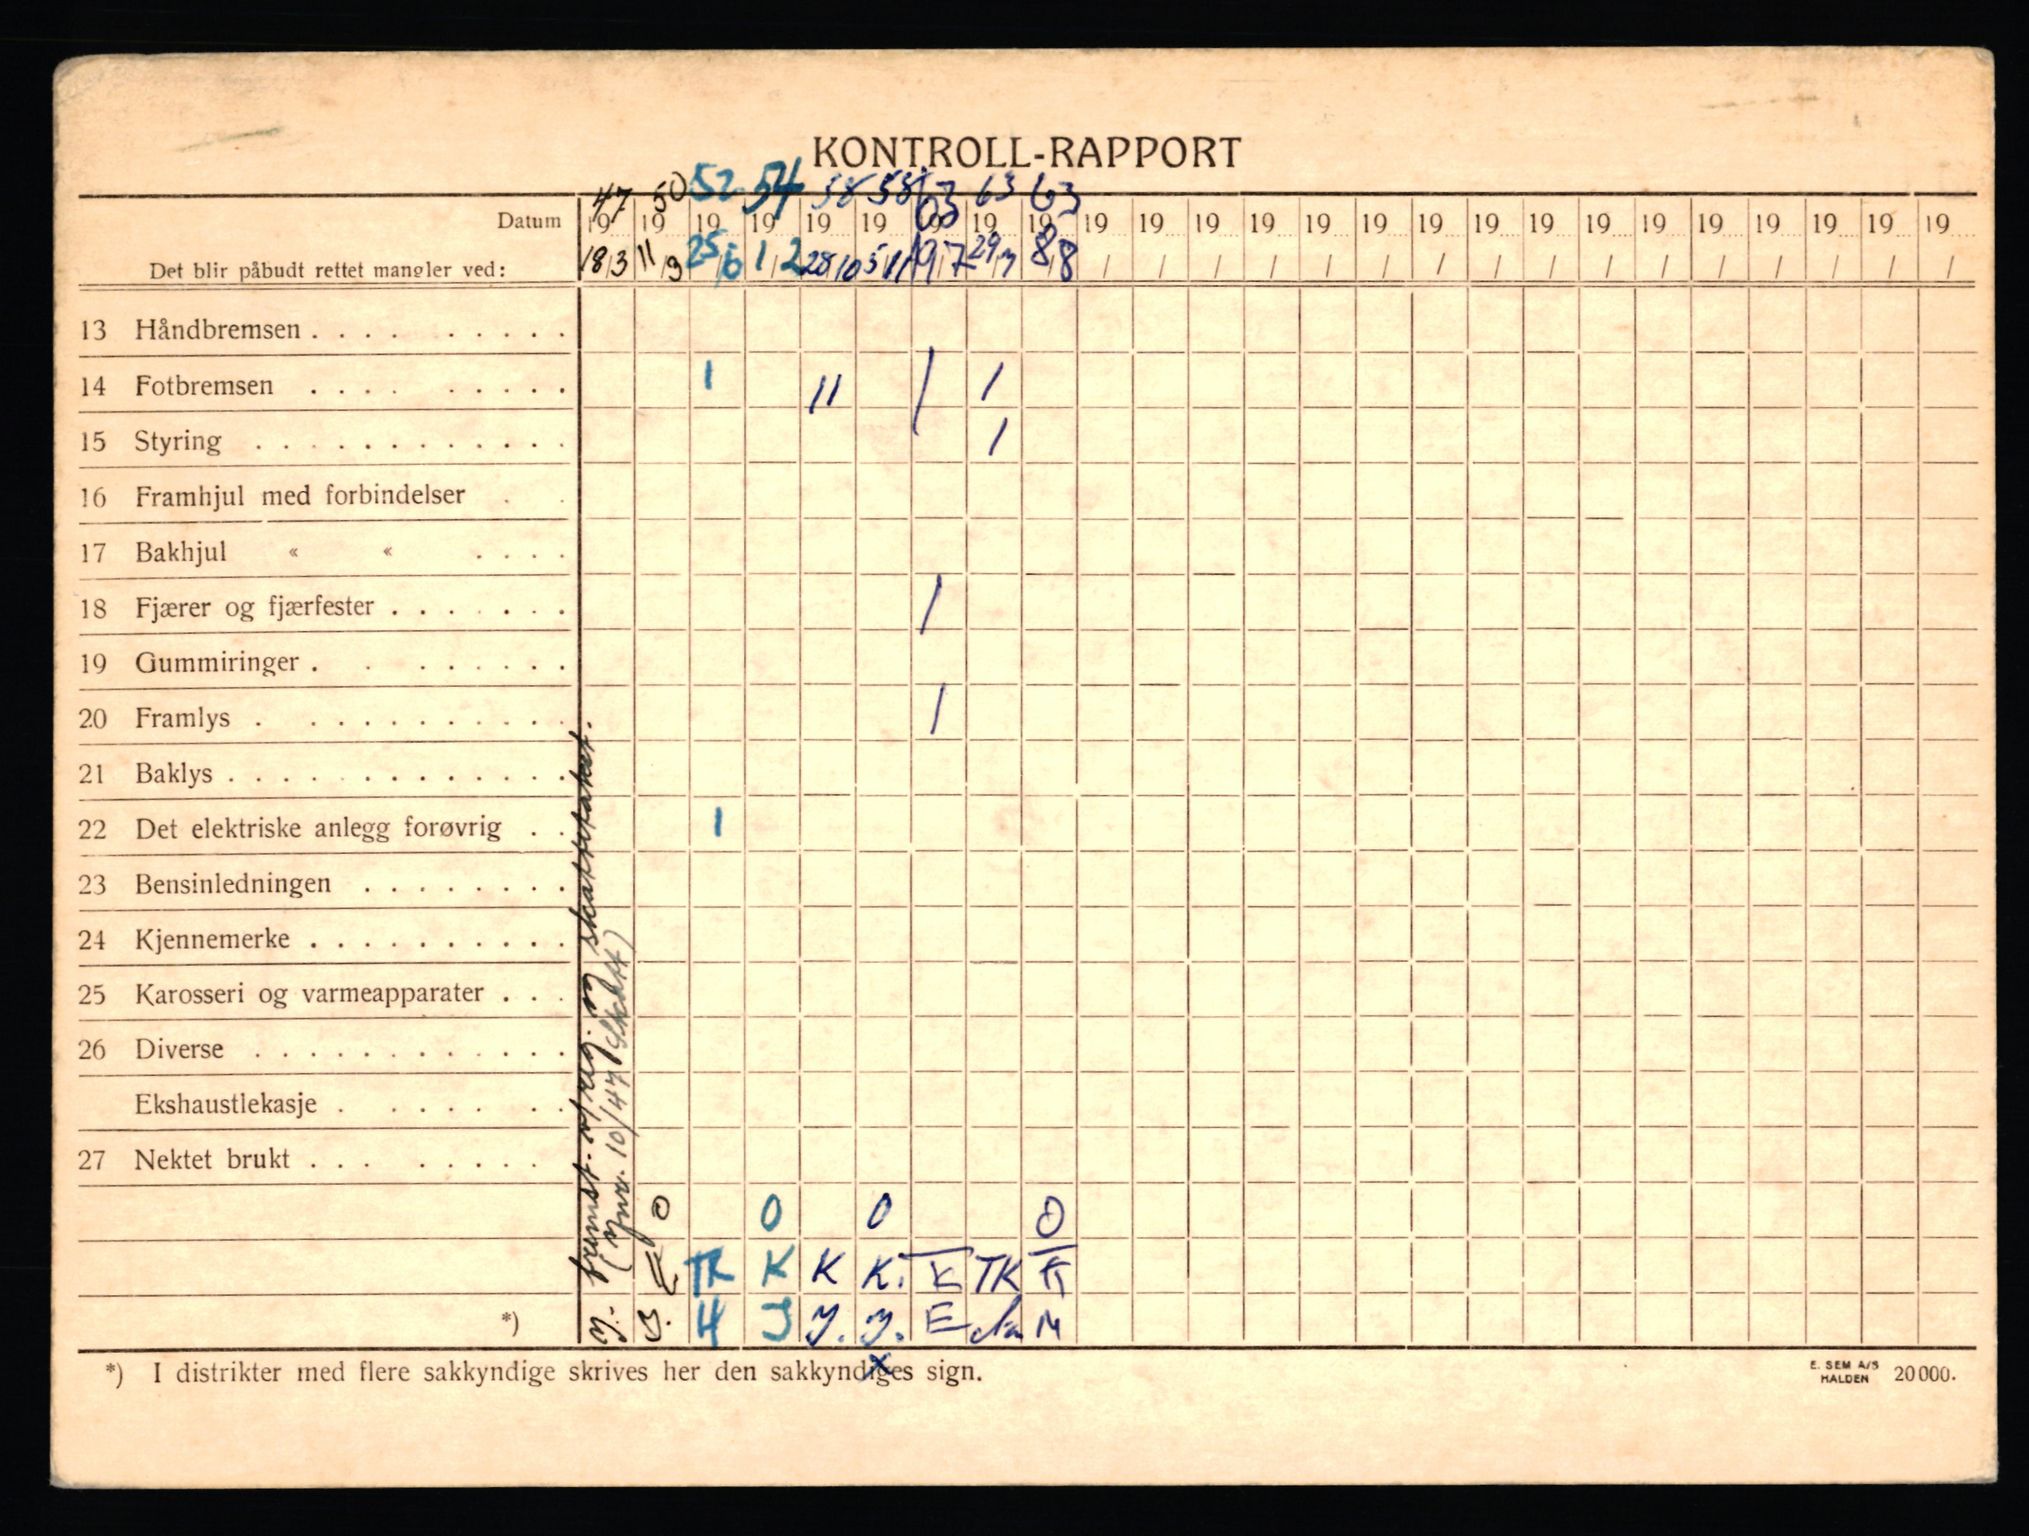 KONTROLL-RAPPORT
47 50 52 54 58 58 63 63 63
Datum 19 19 19 19 19 19 19 19 19 19 19 19 19 19 19 19 19 19 19 19 19 19 19 19 19
Det blir påbudt rettet mangler ved: 18/3 11/9 25/6 1/2 28/10 5/11 19/7 29/7 8/8 / / / / / / / / / / / / / / / /
13 Håndbremsen . . . . . . . . .
14 Fotbremsen . . . . . . . . . 1 11 / /
15 Styring . . . . . . . . . . . . /
16 Framhjul med forbindelser . .
17 Bakhjul « « . . . .
18 Fjærer og fjærfester . . . . . . . /
19 Gummiringer . . . . . . . .
20 Framlys . . . . . . . . . . . /
21 Baklys . . . . . . . . . . . . .
22 Det elektriske anlegg forøvrig . . 1
23 Bensinledningen . . . . . . . .
24 Kjennemerke . . . . . . . . . .
25 Karosseri og varmeapparater . . .
26 Diverse . . . . . . . . . . . .
Ekshaustlekasje . . . . . . .
27 Nektet brukt . . . . . . . .
fremst. v/reg. m skattetakst.
10/47
0 0 0 0
K TK K K K. K TK K
*) J. J. H J J. J. E M
x
*) I distrikter med flere sakkyndige skrives her den sakkyndiges sign.
E. SEM A/S
HALDEN 20000.